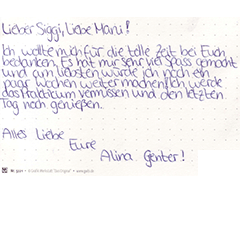 Lieber Siggi, Liebe Mani!
Ich wollte mich für die tolle Zeit bei Euch
bedanken. Es hat mir sehr viel Spass gemacht
und am liebsten würde ich noch ein
paar Wochen weitermachen! Ich werde
das Praktikum vermissen und den letzten
Tag noch genießen.
Alles Liebe
Eure
Alina Genter!